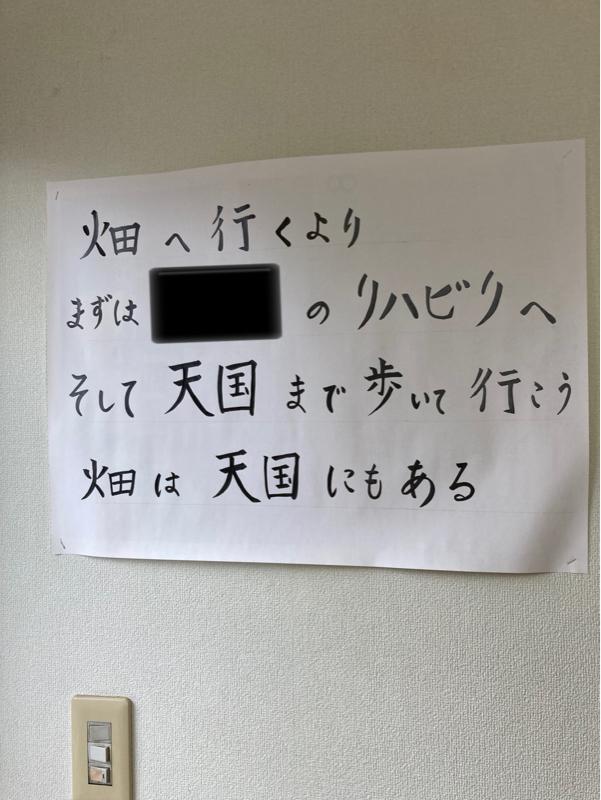 畑へ行くより
まずは の リハビリへ
そして 天国 まで 歩いて 行こう
畑は 天国 にも ある